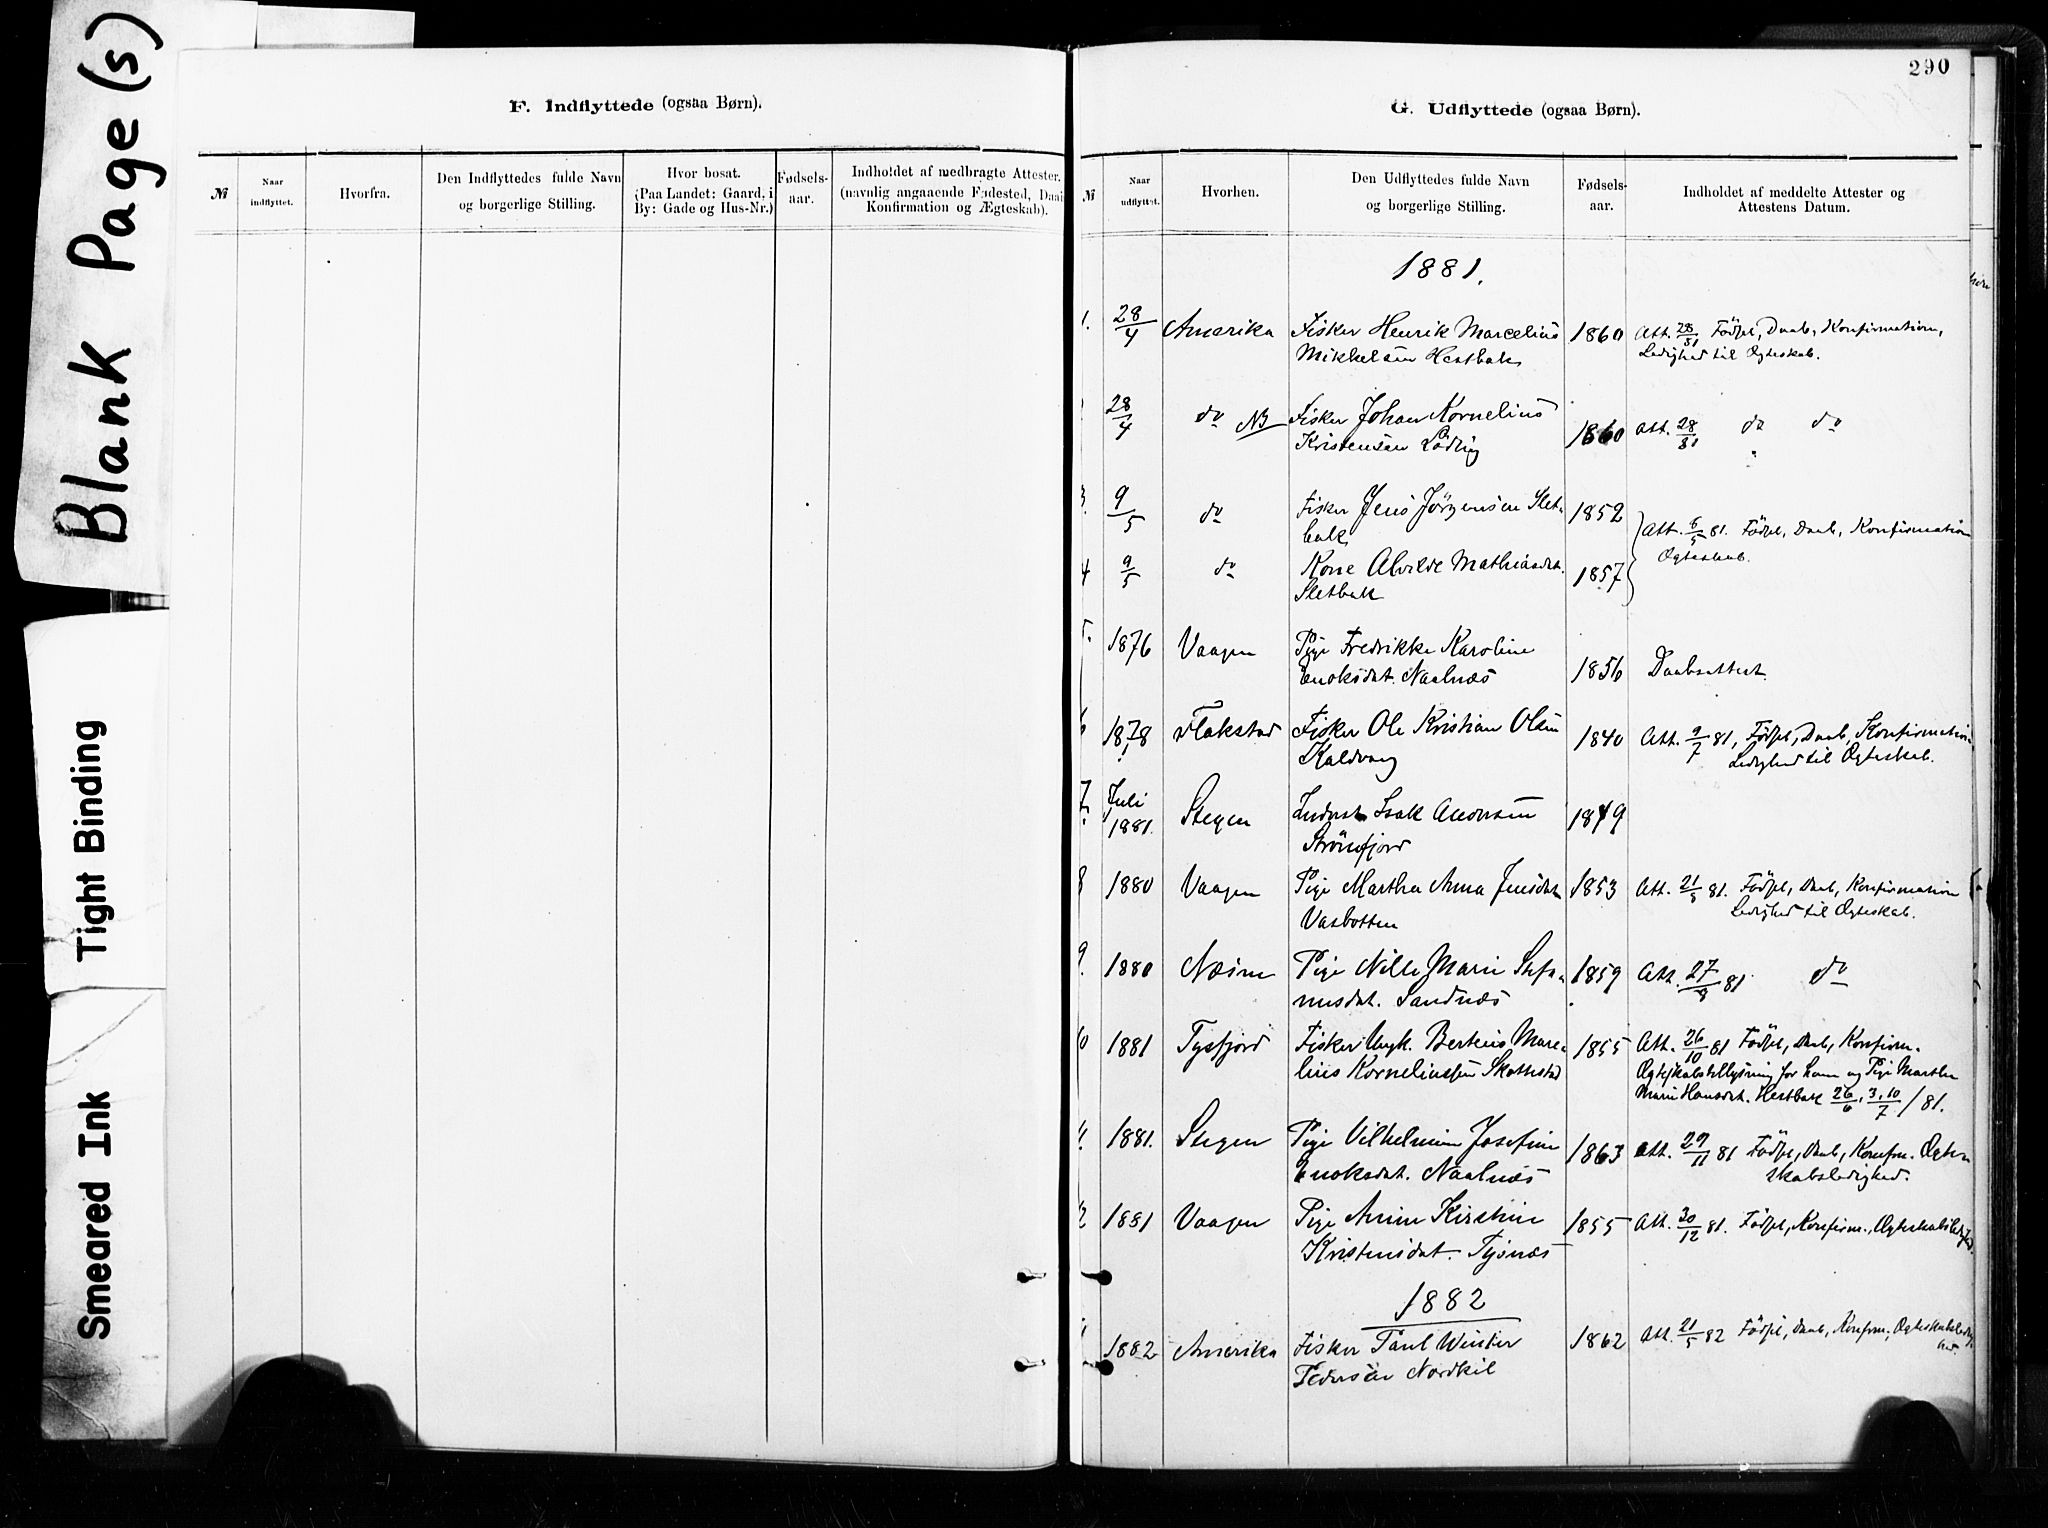 Blank Page (s)
Tight Binding
Smeared Ink
F. Indflyttede (ogsaa Børn).
№
Naar indflyttet.
Hvorfra.
Den Indflyttedes fulde Navn og borgerlige Stilling.
Hvor bosat. (Paa Landet: Gaard, i By: Gade og Hus-Nr.)
Fødsels-aar.
Indholdet af medbragte Attester. (navnlig angaaende Fødested, Daab, Konfirmation og Ægteskab).
290
G. Udflyttede (ogsaa Børn).
№
Naar udflyttet.
Hvorhen.
Den Udflyttedes fulde Navn og borgerlige Stilling.
Fødsels-aar.
Indholdet af meddelte Attester og Attestens Datum.
1881.
1. 28/4 Amerika Fisker Henrik Marcelius 1860 Att. 28/81 Födsel, Daab, Konfirmation,
Mikkelsen Hestbak Ledighed til Ögteskab.
28/4 do NB Fisker Johan Kornelius
Kristensen Lödlng 1860 Att. 28/81 do do
3. 9/5 do Fisker Jens Jörgensen Slet- 1852
bak Att. 6/5 81. Födsel, Daab, Konfirmation
4 9/5 do Kone Alvilde Mathiasdat. 1857 Ögteskab.
Sletbak
5. 1876 Vaagen Pige Fredrikke Karoline
Enoksdat. Naalnæs 1856 Daabsattest.
6 1878 Flakstad Fisker Ole Kristian Olsen 1840 Att. 9/7 81, Födsel, Daab, Konfirmation
Kaldvaag Ledighed til Ögteskab.
7. Juli 1881. Steigen Isak Andersen 1849
8 1880 Vaagen Pige Martha Anna Jensdat. 1853 Att. 21/8 81. Födsel, Daab, Konfirmation
Vasbotten Ledighed til Ögteskab.
9. 1880 Næsne Pige Nille Marie Stefa- 1859 Att. 27/8 81 do
nusdat. Sandnæs
10 1881 Tysfjord Fisker Ungk. Berteus Marc- 1855 Att. 26/10 81 Födsel, Daab, Konfirm.
lius Korneliussen Skottestad Ögteskabstillysning for ham og Pige Martha
Marie Hansdat. Hestbak 26/6, 3,10/7 / 81.
11. 1881. Steigen Pige Vilhelmine Josefine 1863 Att. 29/11 81 Födsel, Daab, Konfrm. Ögte-
Enoksdat. Naalnæs skabsledighed.
12 1881 Vaagen Pige Anine Kirstine 1855 Att. 30/12 81. Födsel, Konfirm., Ögteskabsledighed.
Kristensdat. Tysnæs
1882
1 1882 Amerika Fisker Paul Winter 1862 Att. 21/5 82 Födsel, Daab, Konfrm., Ögteskabsledig-
Pedersen Nordkil hed.